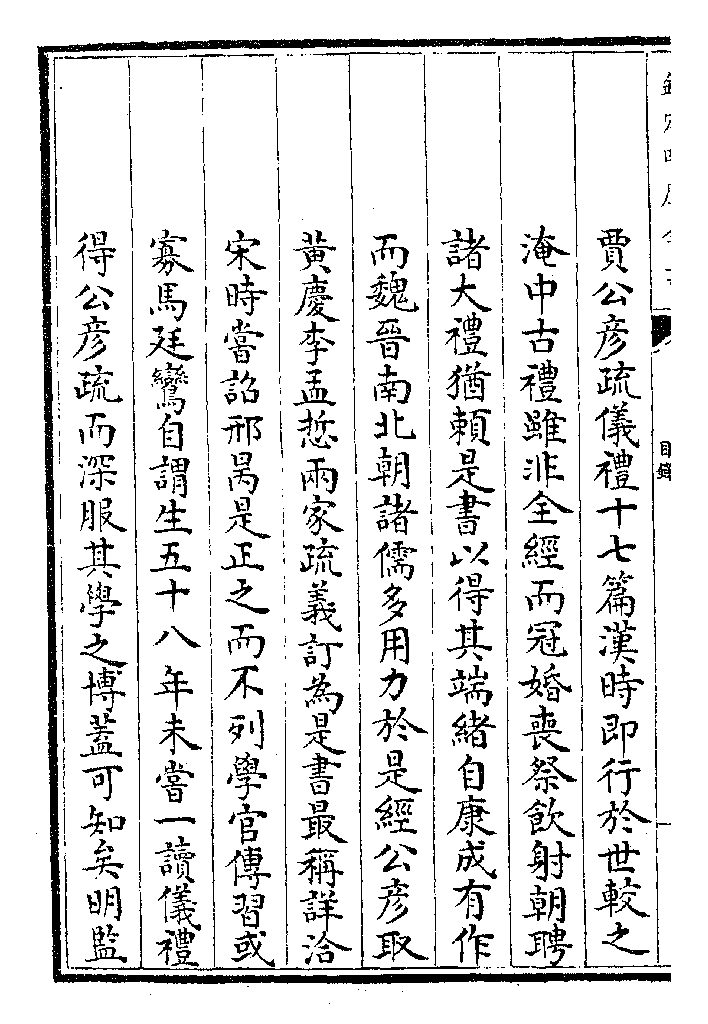 欽定四庫全書
目錄
賈公彦疏儀禮十七篇漢時即行於世較之
淹中古禮雖非全經而冠婚喪祭飲射朝聘
諸大禮猶頼是書以得其端緒自康成有作
而魏晉南北朝諸儒多用力於是經公彦取
黄慶李孟悊兩家疏義訂為是書最稱詳洽
宋時嘗詔邢昺是正之而不列學官傳習或
寡馬廷鸞自謂生五十八年未嘗一讀儀禮
得公彦疏而深服其學之博蓋可知矣明監